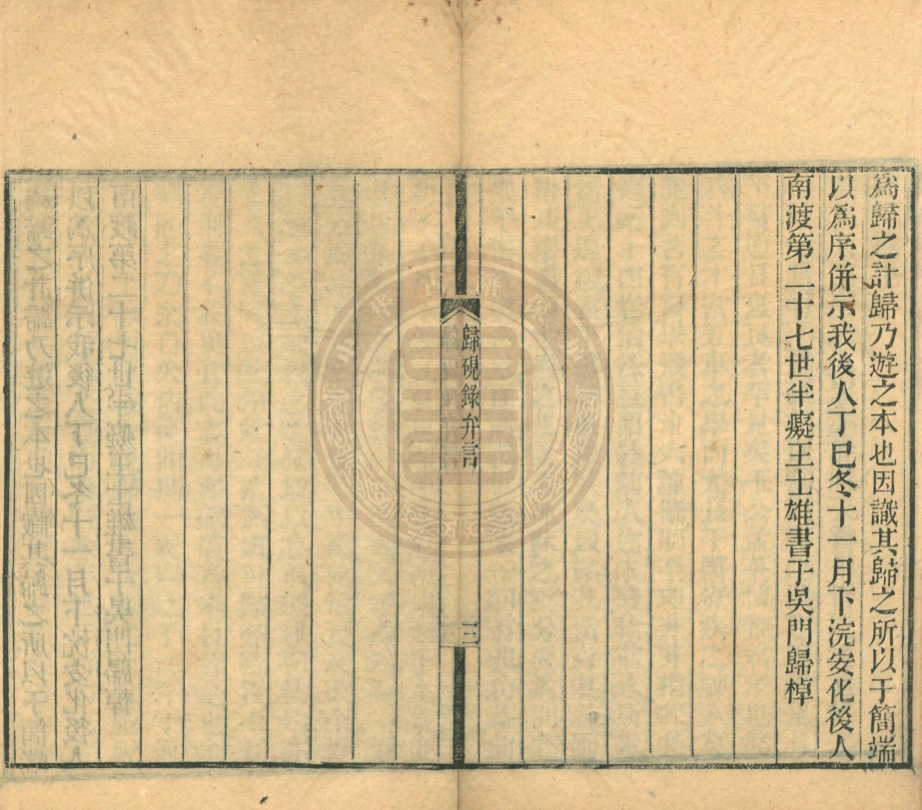 為歸之計歸乃遊之本也因識其歸之所以于簡端
以爲序併示我後人丁巳冬十一月下浣安化後人
南渡第二十七世半癡王士雄書于吳門歸棹
歸硯錄弁言
三